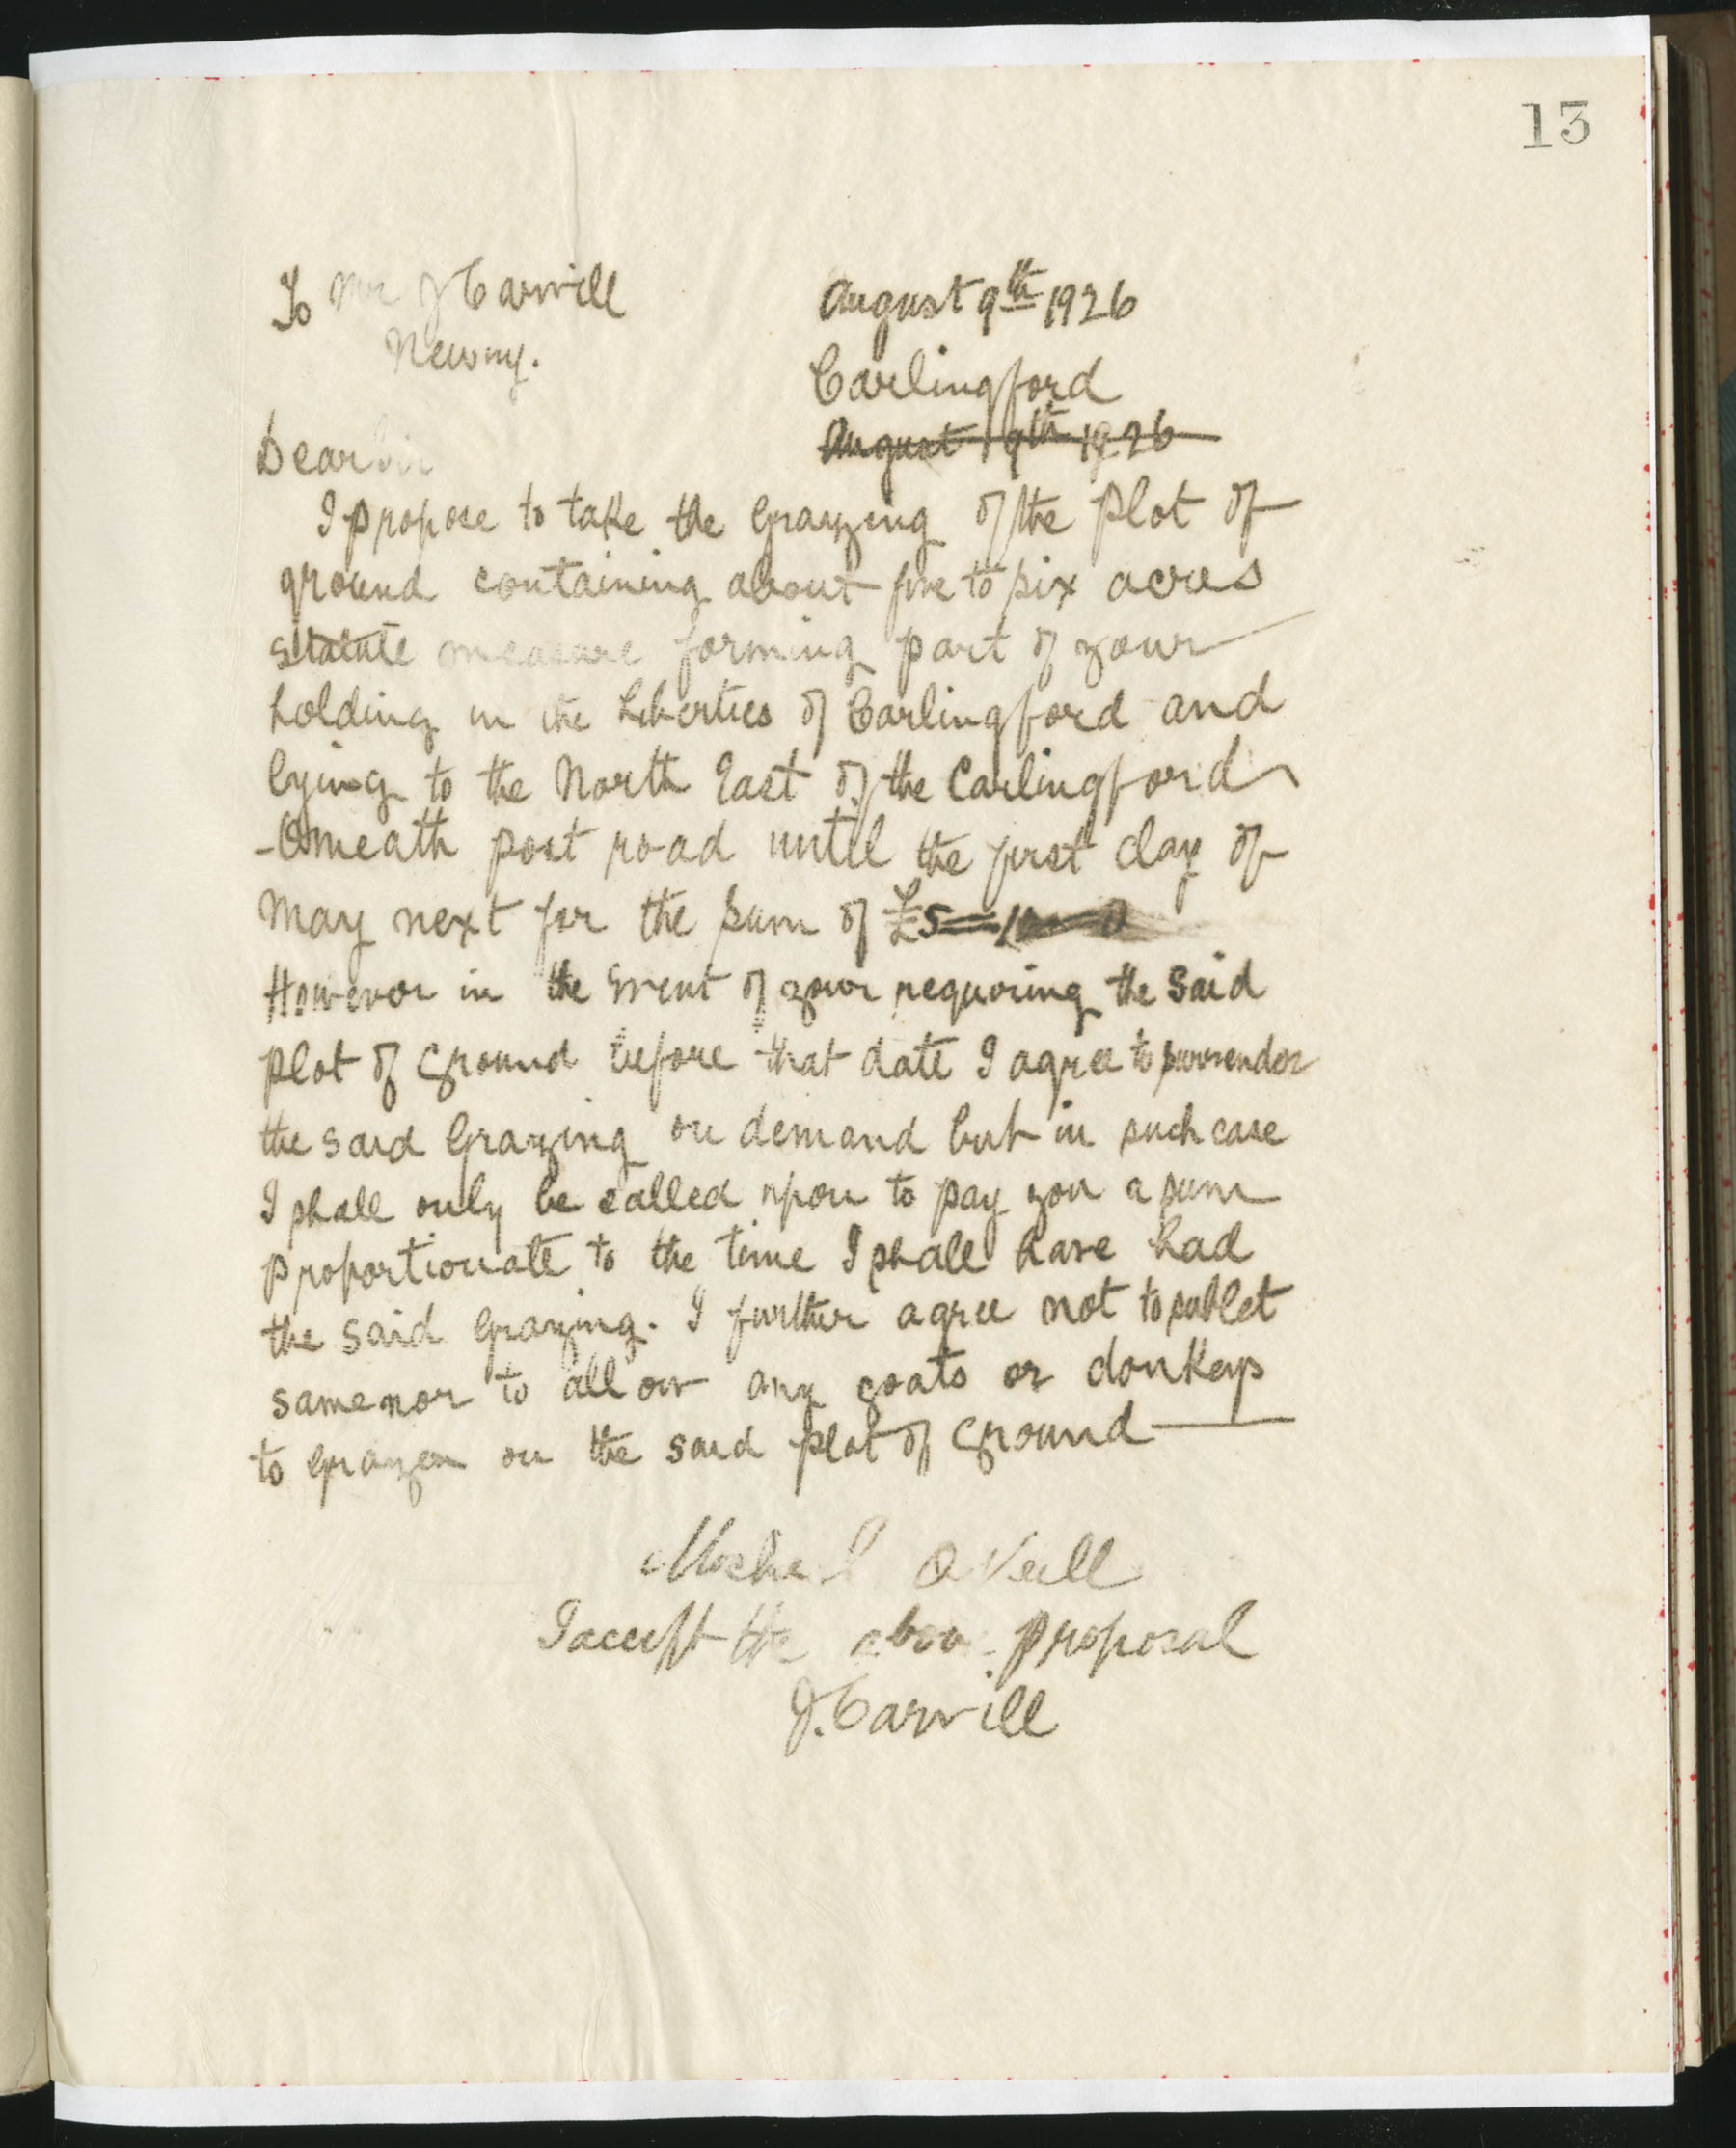 13
To Mr J Carvill
Newry.
August 9th 1926
Carlingford
August 9th 1926
Dear Sir
I propose to take the Grazing of the plot of
ground containing about five to six acres
statute measure forming part of your
holding in the Liberties of Carlingford and
lying to the North East of the Carlingford
-Omeath post road until the first day of
May next for the sum of £5
However in the Event of your requiring the said
plot of Ground before that date I agree to surrender
the said Grazing on demand but in such case
I shall only be called upon to pay you a sum
proportionate to the time I shall have had
the said Grazing. I further agree not to sublet
same nor to allow any goats or donkeys
to Grazen on the said plot of Ground
Michael O Neill
I accept the above proposal
J. Carvill